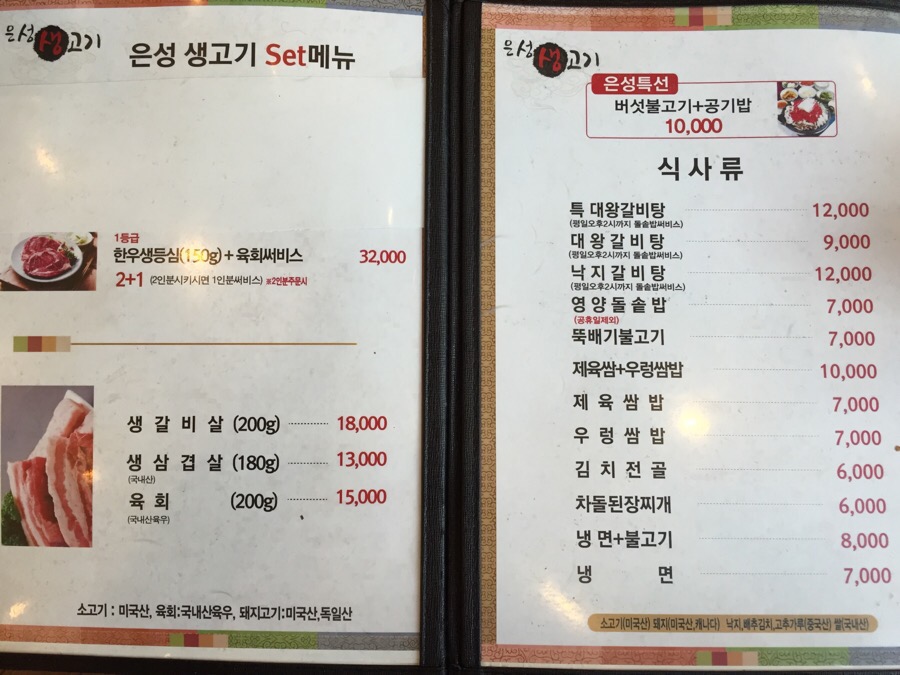 은성 생고기
은성 생고기 Set메뉴
1등급
한우생등심(150g)+육회써비스 32,000
2+1 (2인분시키시면 1인분써비스) ※2인분주문시
생갈비살 (200g) 18,000
생삼겹살 (180g) 13,000
(국내산)
육회 (200g) 15,000
(국내산육우)
소고기 : 미국산, 육회:국내산육우, 돼지고기:미국산,독일산
은성 생고기
은성특선
버섯불고기+공기밥
10,000
식사류
특 대왕갈비탕 12,000
(평일오후2시까지 돌솥밥써비스)
대왕갈비탕 9,000
(평일오후2시까지 돌솥밥써비스)
낙지갈비탕 12,000
(평일오후2시까지 돌솥밥써비스)
영양돌솥밥 7,000
(공휴일제외)
뚝배기불고기 7,000
제육쌈+우렁쌈밥 10,000
제육쌈밥 7,000
우렁쌈밥 7,000
김치전골 6,000
차돌된장찌개 6,000
냉면+불고기 8,000
냉면 7,000
소고기(미국산) 돼지(미국산,캐나다) 낙지,배추김치,고추가루(중국산) 쌀(국내산)